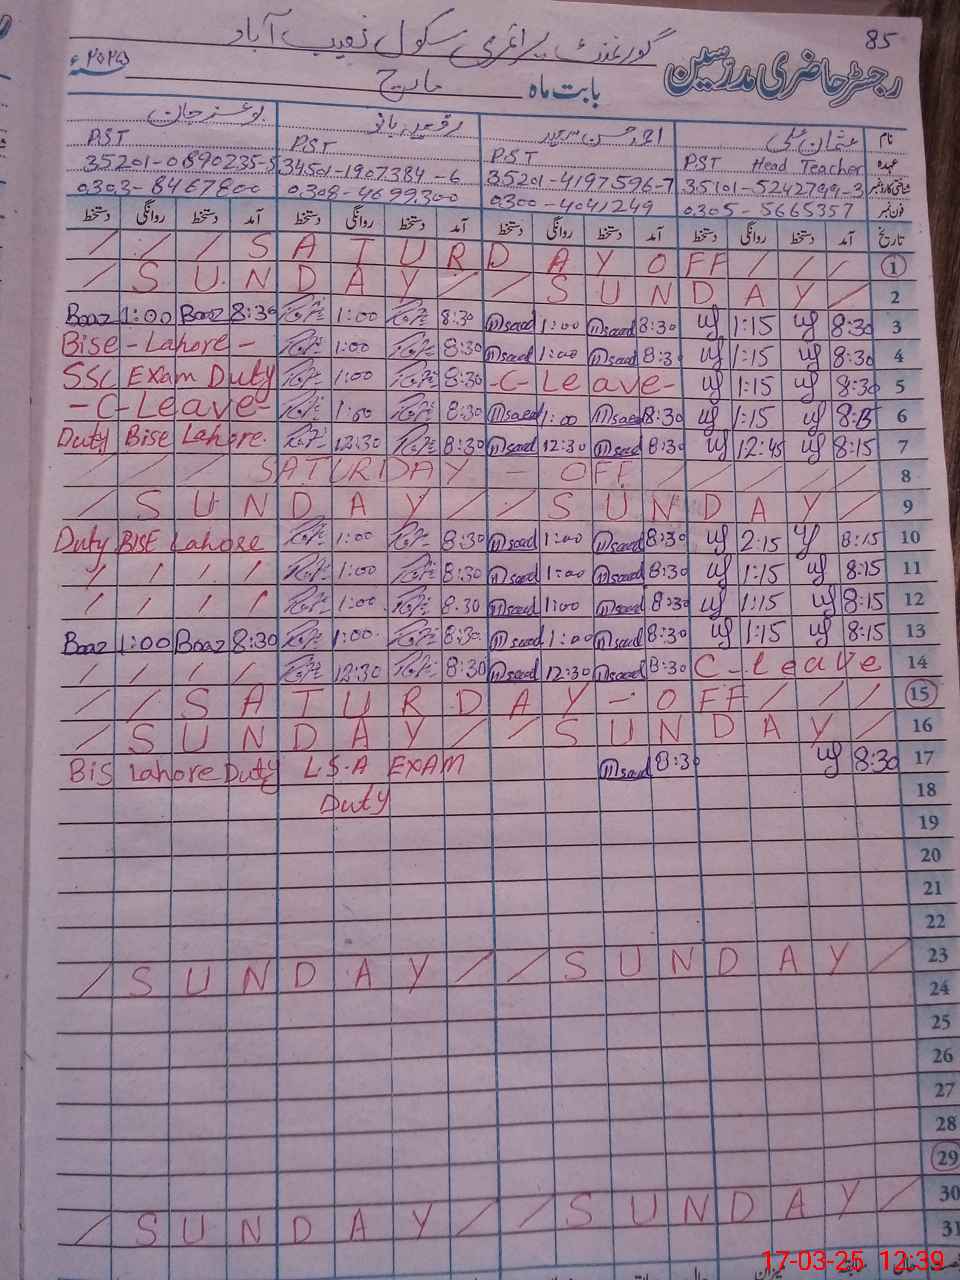 85
گورنمنٹ پرائمری سکول نجیب آباد
رجسٹر حاضری مدرسین
بابت ماہ مارچ ۲۰۲۵ء
نام عثمان علی احمد حسن سعید بانو جان
عہدہ PST Head Teacher PST PST PST
شناختی کارڈ نمبر 35101-5242799-3 35201-4197596-7 34501-1907384-6 35201-0890235-5
فون نمبر 0305-5665357 0300-4041249 0308-4699300 0303-8467800
تاریخ آمد دستخط روانگی دستخط آمد دستخط روانگی دستخط آمد دستخط روانگی دستخط آمد دستخط روانگی دستخط
/ / / S A T U R D A Y O FF / / / 1
/ S U N D A Y / / S U N D A Y / 2
Boaz 1:00 Boaz 8:30 1:00 8:30 saad 1:00 saad 8:30 1:15 8:30 3
Bise - Lahore - 1:00 8:30 saad 1:00 saad 8:30 1:15 8:30 4
SSC Exam Duty 1:00 8:30 -C- Leave- 1:15 8:30 5
-C-Leave- 1:00 8:30 saad 1:00 saad 8:30 1:15 8:15 6
Duty Bise Lahore. 12:30 8:30 saad 12:30 saad 8:30 12:45 8:15 7
/ / / / SATURDAY - OFF / / / / / 8
/ S U N D A Y / / S U N D A Y / 9
Duty BISE Lahore 1:00 8:30 saad 1:00 saad 8:30 2:15 8:15 10
/ / / / 1:00 8:30 saad 1:00 saad 8:30 1:15 8:15 11
/ / / / 1:00 8:30 saad 1:00 saad 8:30 1:15 8:15 12
Boaz 1:00 Boaz 8:30 1:00 8:30 saad 1:00 saad 8:30 1:15 8:15 13
/ / / / 12:30 8:30 saad 12:30 saad 8:30 C - leave 14
/ / S A T U R D A Y - O FF / / / 15
/ S U N D A Y / / S U N D A Y / 16
BiS Lahore Duty L.S.A EXAM saad 8:30 8:30 17
Duty 18
19
20
21
22
/ S U N D A Y / / S U N D A Y / 23
24
25
26
27
28
29
/ S U N D A Y / / S U N D A Y / 30
31
17-03-25 12:39